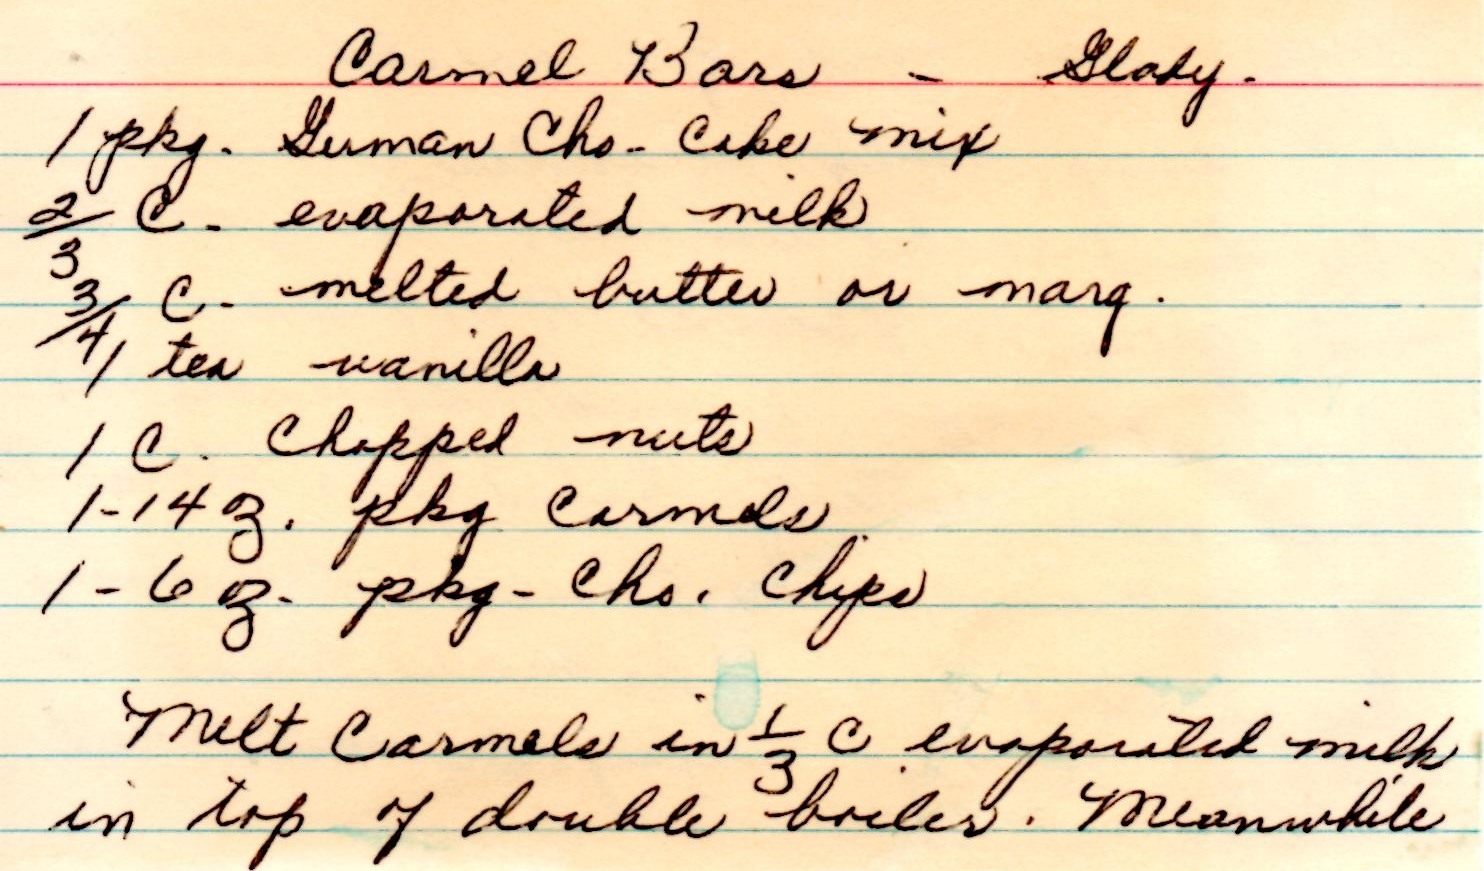 Carmel Bars - Glady.
1 pkg. German Cho- Cake mix
2/3 C. evaporated milk
3/4 C. melted butter or marg.
1 tea vanilla
1 C. Chopped nuts
1-14 oz. pkg Carmels
1-6 oz. pkg- Cho. Chips
Melt Carmels in 1/3 C evaporated milk
in top of double boiler. Meanwhile